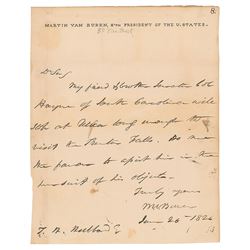 8.
MARTIN VAN BUREN, 8TH PRESIDENT OF THE U. STATES.
D Sir
My friend & brother Senator Col
Hayne of South Carolina will
stop at Utica long enough to
visit the Trenton Falls. Do me
the favor to assist him in the
pursuit of his objects.
Truly yours
M V Buren
June 26 1824